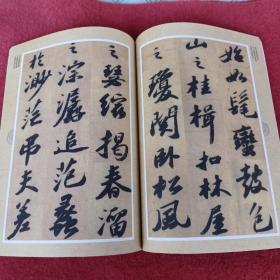 始如髦蠻鼓包
山之桂楫扣林屋
之瓊關卧松風
之瑟縮揭春溜
之淙潺追范蠡
於渺茫吊夫差